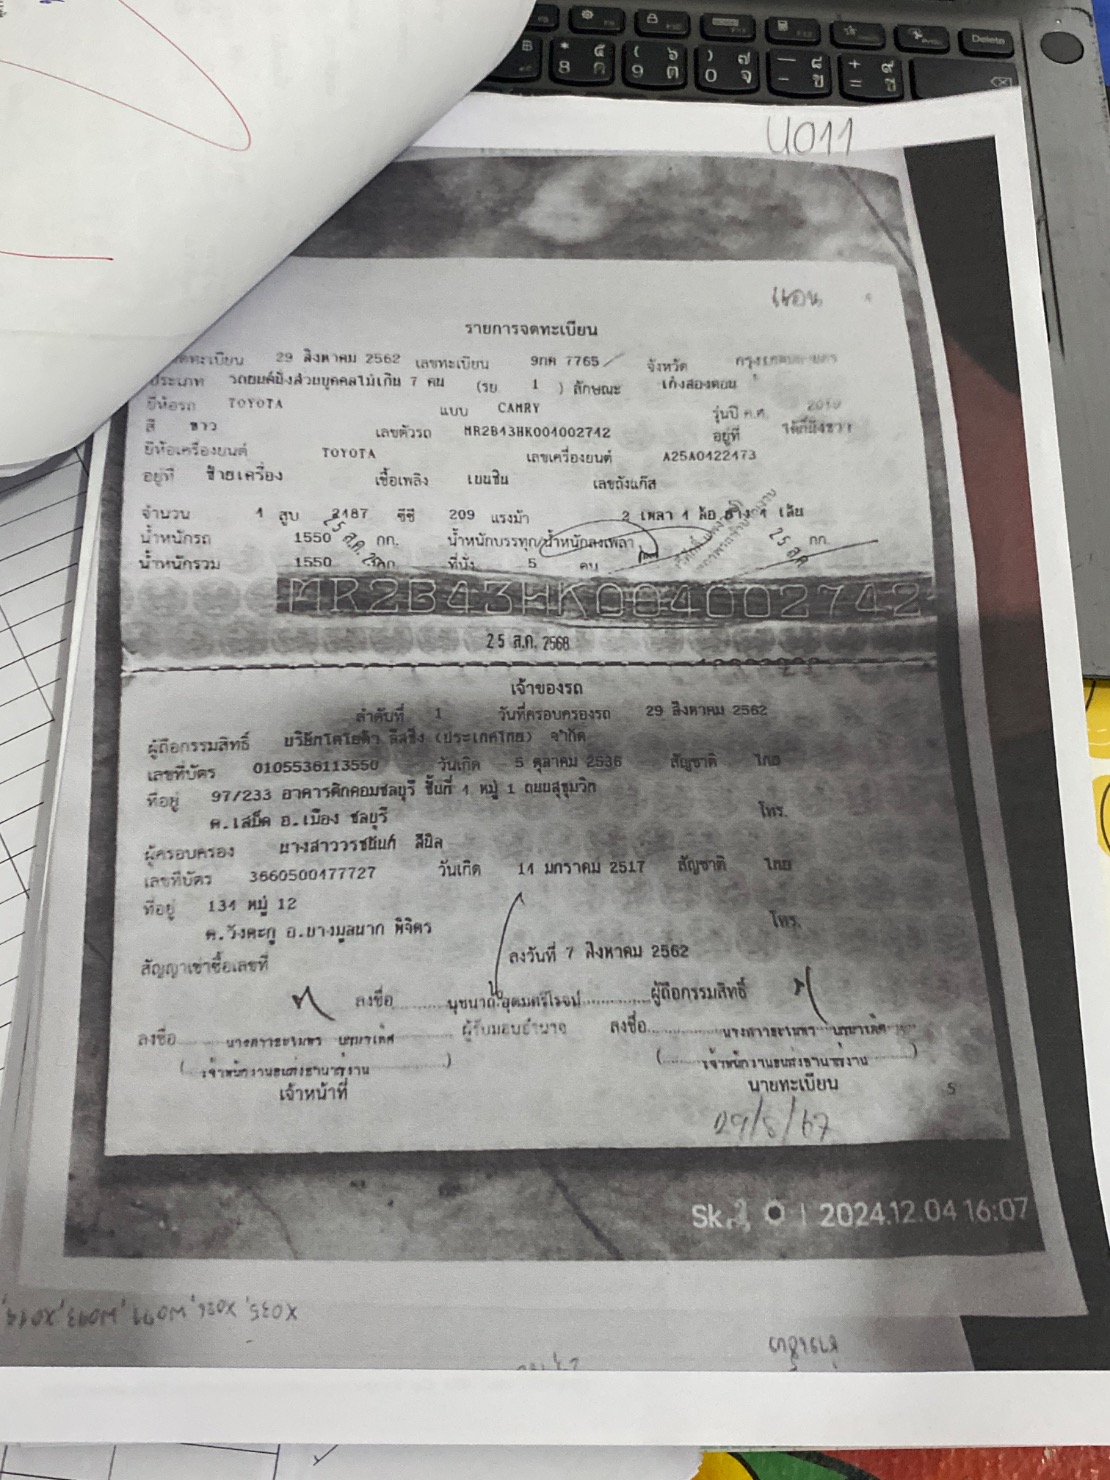 U011
รายการจดทะเบียน
จดทะเบียน 29 สิงหาคม 2562 เลขทะเบียน 9กค 7765 จังหวัด กรุงเทพมหานคร
ประเภท รถยนต์นั่งส่วนบุคคลไม่เกิน 7 คน (รย 1 ) ลักษณะ เก๋งสองตอน
ยี่ห้อรถ TOYOTA แบบ CAMRY รุ่นปี ค.ศ. 2019
สี ขาว เลขตัวรถ MR2B43HK004002742 อยู่ที่
ยี่ห้อเครื่องยนต์ TOYOTA เลขเครื่องยนต์ A25A0422473
อยู่ที่ ซ้ายเครื่อง เชื้อเพลิง เบนซิน เลขถังแก๊ส
จำนวน 4 สูบ 2487 ซีซี 209 แรงม้า 2 เพลา 4 ล้อ ยาง 4 เส้น
น้ำหนักรถ 1550 กก. น้ำหนักบรรทุก/น้ำหนักลงเพลา กก.
น้ำหนักรวม 1550 กก. ที่นั่ง 5 คน
MR2B43HK004002742
25 ส.ค. 2568
เจ้าของรถ
ลำดับที่ 1 วันที่ครอบครองรถ 29 สิงหาคม 2562
ผู้ถือกรรมสิทธิ์ บริษัทโตโยต้า ลีสซิ่ง (ประเทศไทย) จำกัด
เลขที่บัตร 0105536113550 วันเกิด 5 ตุลาคม 2536 สัญชาติ ไทย
ที่อยู่ 97/233 อาคารตึกคอมชลบุรี ชั้นที่ 4 หมู่ 1 ถนนสุขุมวิท
ต.เสม็ด อ.เมือง ชลบุรี โทร.
ผู้ครอบครอง นางสาววรชนันท์ สีนิล
เลขที่บัตร 3660500477727 วันเกิด 14 มกราคม 2517 สัญชาติ ไทย
ที่อยู่ 134 หมู่ 12
ต.วังตะกู อ.บางมูลนาก พิจิตร โทร.
สัญญาเช่าซื้อเลขที่ ลงวันที่ 7 สิงหาคม 2562
ลงชื่อ นุชนาถ อุดมศรีโรจน์ ผู้ถือกรรมสิทธิ์
ลงชื่อ ผู้รับมอบอำนาจ ลงชื่อ
เจ้าพนักงานขนส่งชำนาญงาน เจ้าพนักงานขนส่งชำนาญงาน
เจ้าหน้าที่ นายทะเบียน
5
2024.12.04 16:07